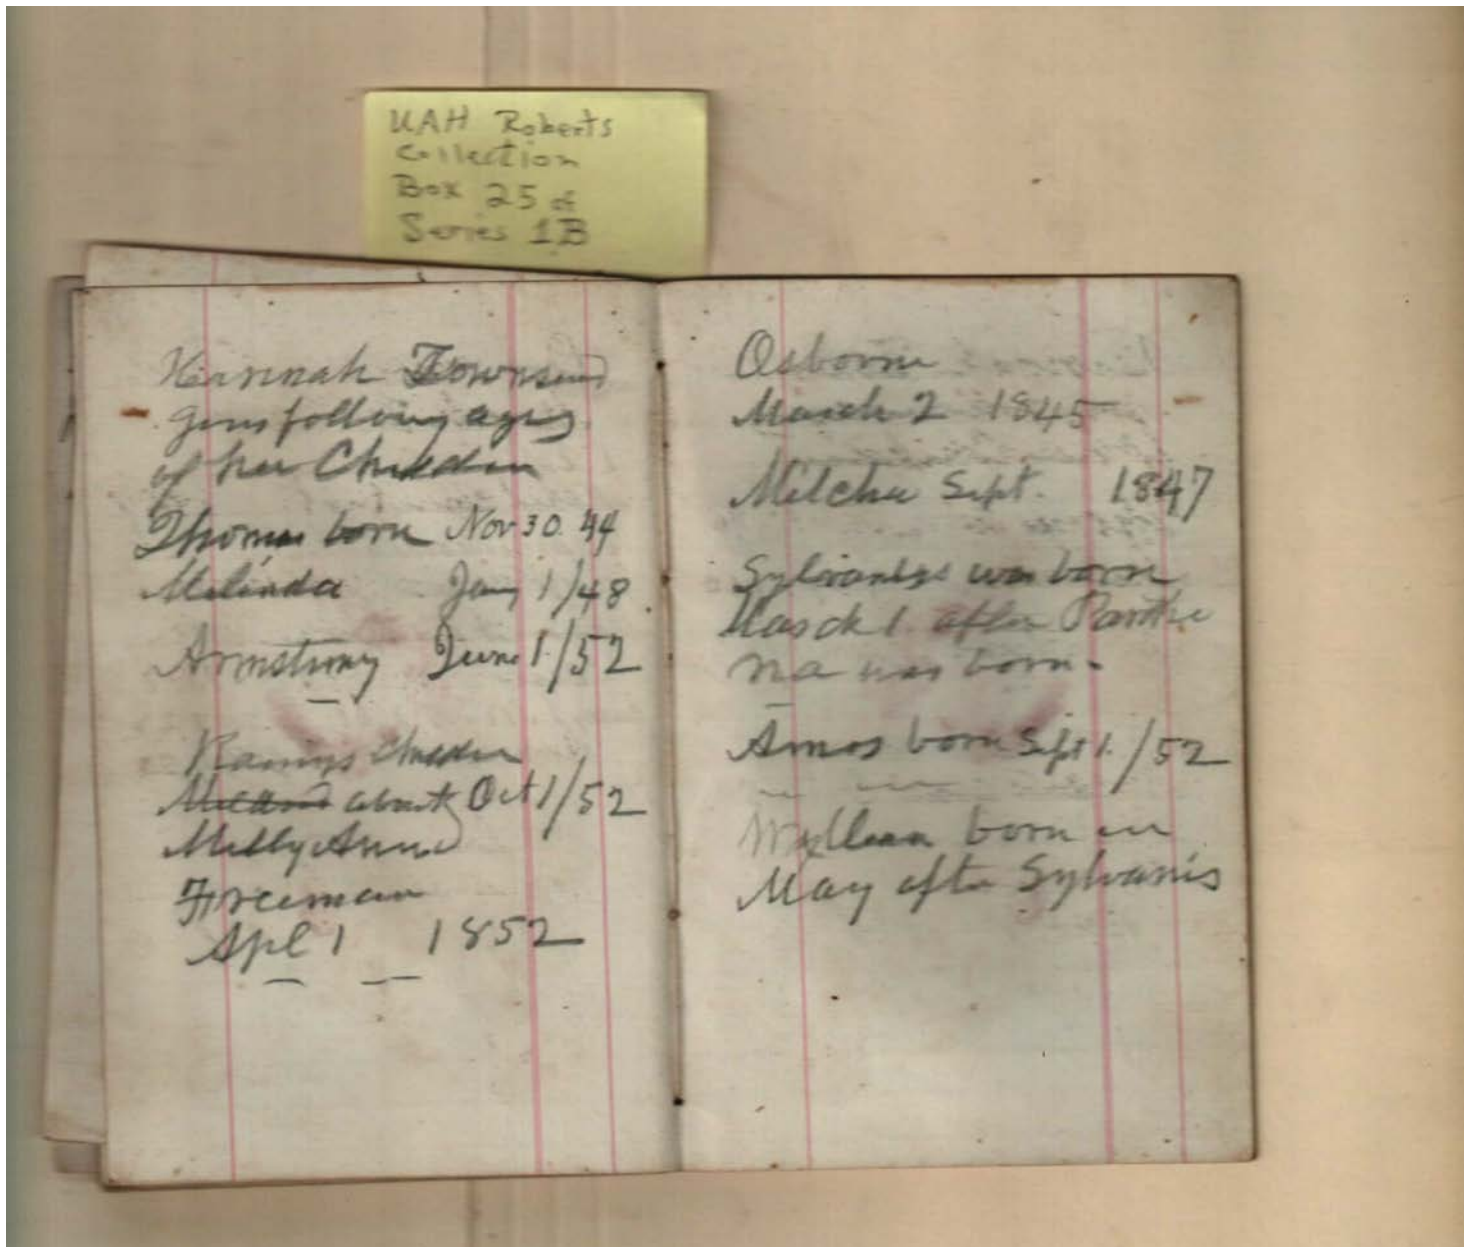 UAH Roberts
Collection
Box 25 of
Series 1B
Hannah Townsend
gives following ages
of her Children
Thomas born Nov 30. 44
Malinda Jany 1/48
Armstrong June 1/52
Children
about Oct 1/52
Milly Anne
Freeman
Apl 1 1852
Osborne
March 2 1845
Sept. 1847
Sylvanus was born
March 1 after Parthe
na was born-
Amos born Sept 1./52
William born in
May after Sylvanis